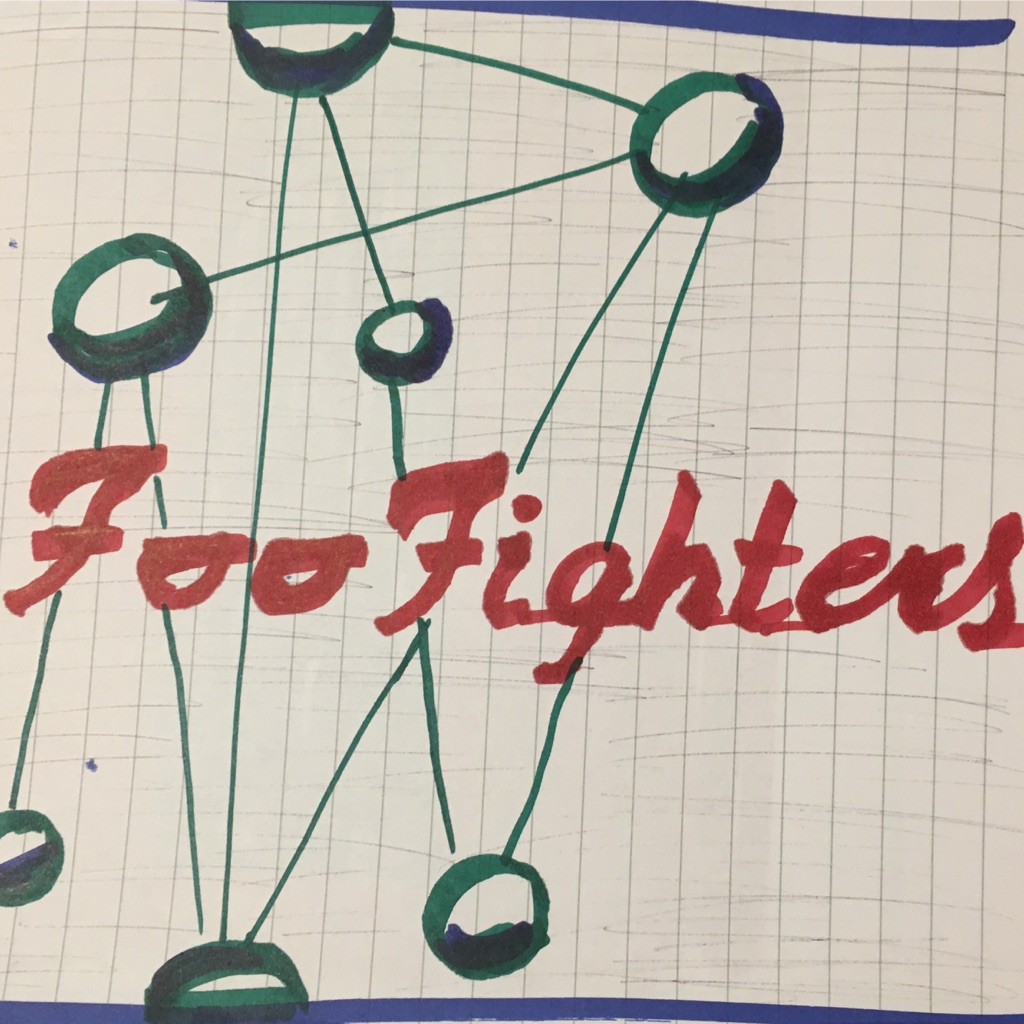 Foo Fighters